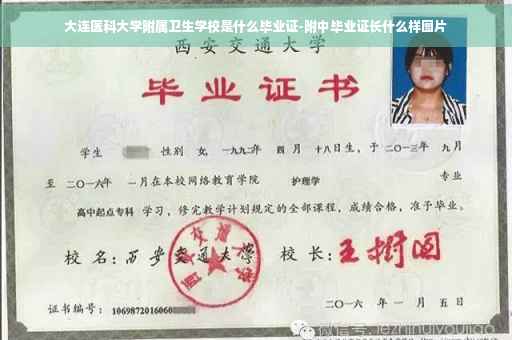 大连医科大学附属卫生学校是什么毕业证-附中毕业证长什么样图片
西安交通大学
毕业证书
学生 性别 女, 一九九二年 四月 十八日生, 于 二〇一三年 九月
至 二〇一六年 一月在本校网络教育学院 护理学 专业
高中起点专科 学习, 修完教学计划规定的全部课程, 成绩合格, 准予毕业。
校 名: 西安交通大学 校 长: 王树国
西安交通大学
证书编号: 1069872016060
二〇一六年 一月 五日
微信号: jiezhihuiyoujiao